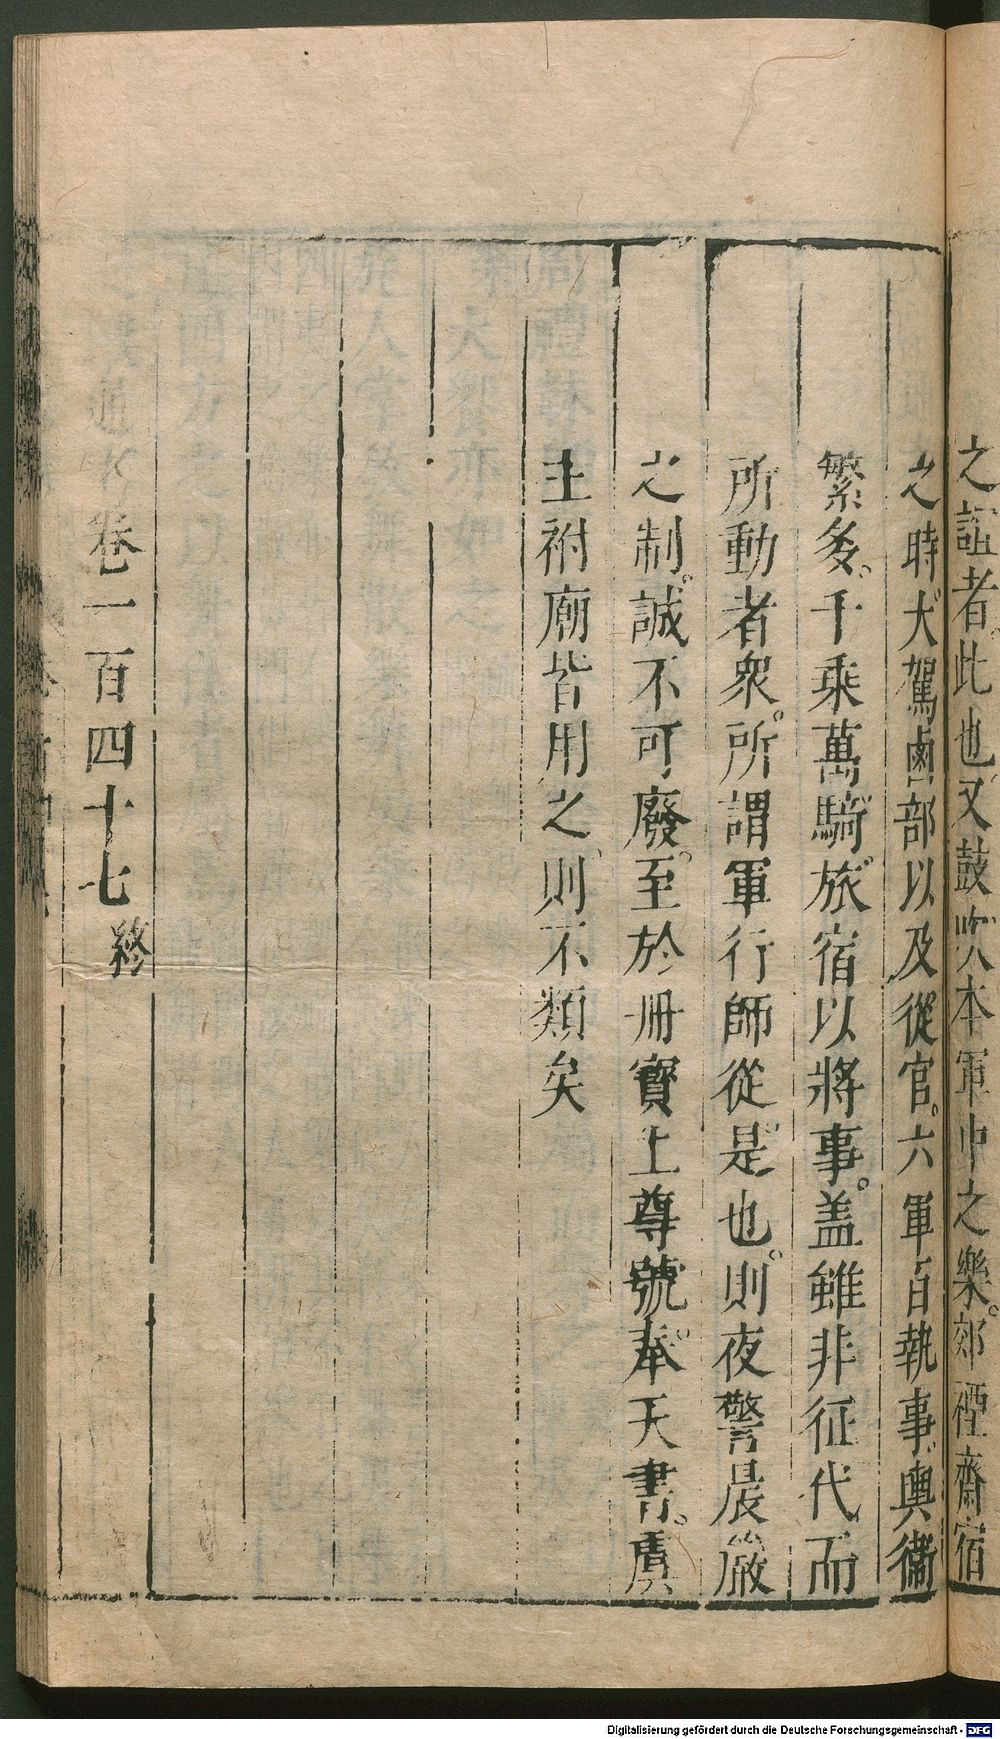 之詛者此也又鼓吹本軍中之樂郊禋齋宿
之時大駕鹵部以及從官六軍百執事輿衞
繁多千乘萬騎旅宿以將事盖雖非征代而
所動者衆所謂軍行師從是也則夜警晨嚴
之制誠不可廢至於册寶上尊號奉天書虞
主祔廟皆用之則不類矣
卷一百四十七終
Digitalisierung gefördert durch die Deutsche Forschungsgemeinschaft - DFG